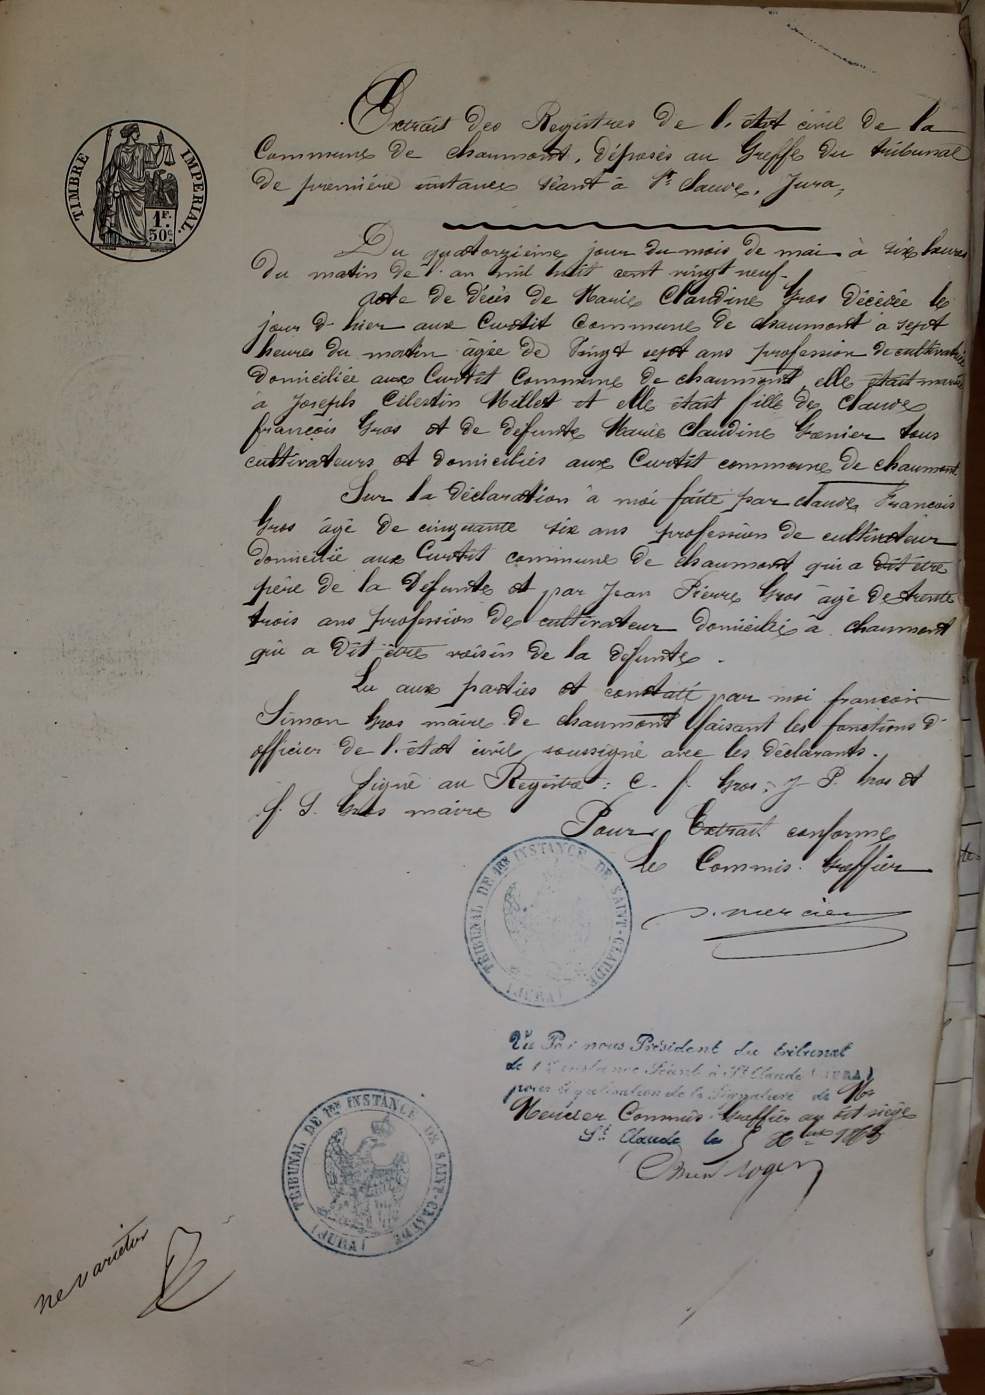 TIMBRE IMPERIAL.
1 F.
50 c.
Extrait des Registres de l'état civil de la
Commune de chaumont, déposés au Greffe du tribunal
de première instance séant à St Claude, Jura,
Du quatorzième jour du mois de mai à six heures
du matin de l'an mil huit cent vingt neuf.
acte de décès de Marie Claudine Gros décédée le
jour d'hier aux Curtit Commune de chaumont à sept
heures du matin âgée de Vingt sept ans profession de cultivatrice
domiciliée aux Curtit Commune de chaumont, elle était mariée
à Joseph Célestin Millet et elle était fille de Claude
françois Gros et de defunte Marie Claudine Grenier tous
cultivateurs et domiciliés aux Curtit commune de chaumont
Sur la déclaration à moi faite par claude François
Gros âgé de cinquante six ans profession de cultivateur
domicilié aux Curtit commune de chaumont qui a dit être
père de la Défunte et par Jean Pierre Gros âgé de trente
trois ans profession de cultivateur domicilié à chaumont
qui a dit être voisin de la défunte.
Lu aux parties et constaté par moi françois
Simon Gros maire de chaumont faisant les fonctions d'
officier de l'état civil soussigné avec les déclarants.
Signé au Registre: C. f. Gros; J P. Gros et
f. S. Gros maire
Pour Extrait conforme
Le Commis Greffier
Mercier
TRIBUNAL DE 1ERE INSTANCE DE SAINT-CLAUDE
(JURA)
Vu Par nous Président du tribunal
de 1re instance Séant à St Claude (JURA)
pour légalisation de la Signature de Mr
Mercier Commis Greffier au dit siège
St Claude le
TRIBUNAL DE 1ERE INSTANCE DE SAINT-CLAUDE
(JURA)
ne varietur